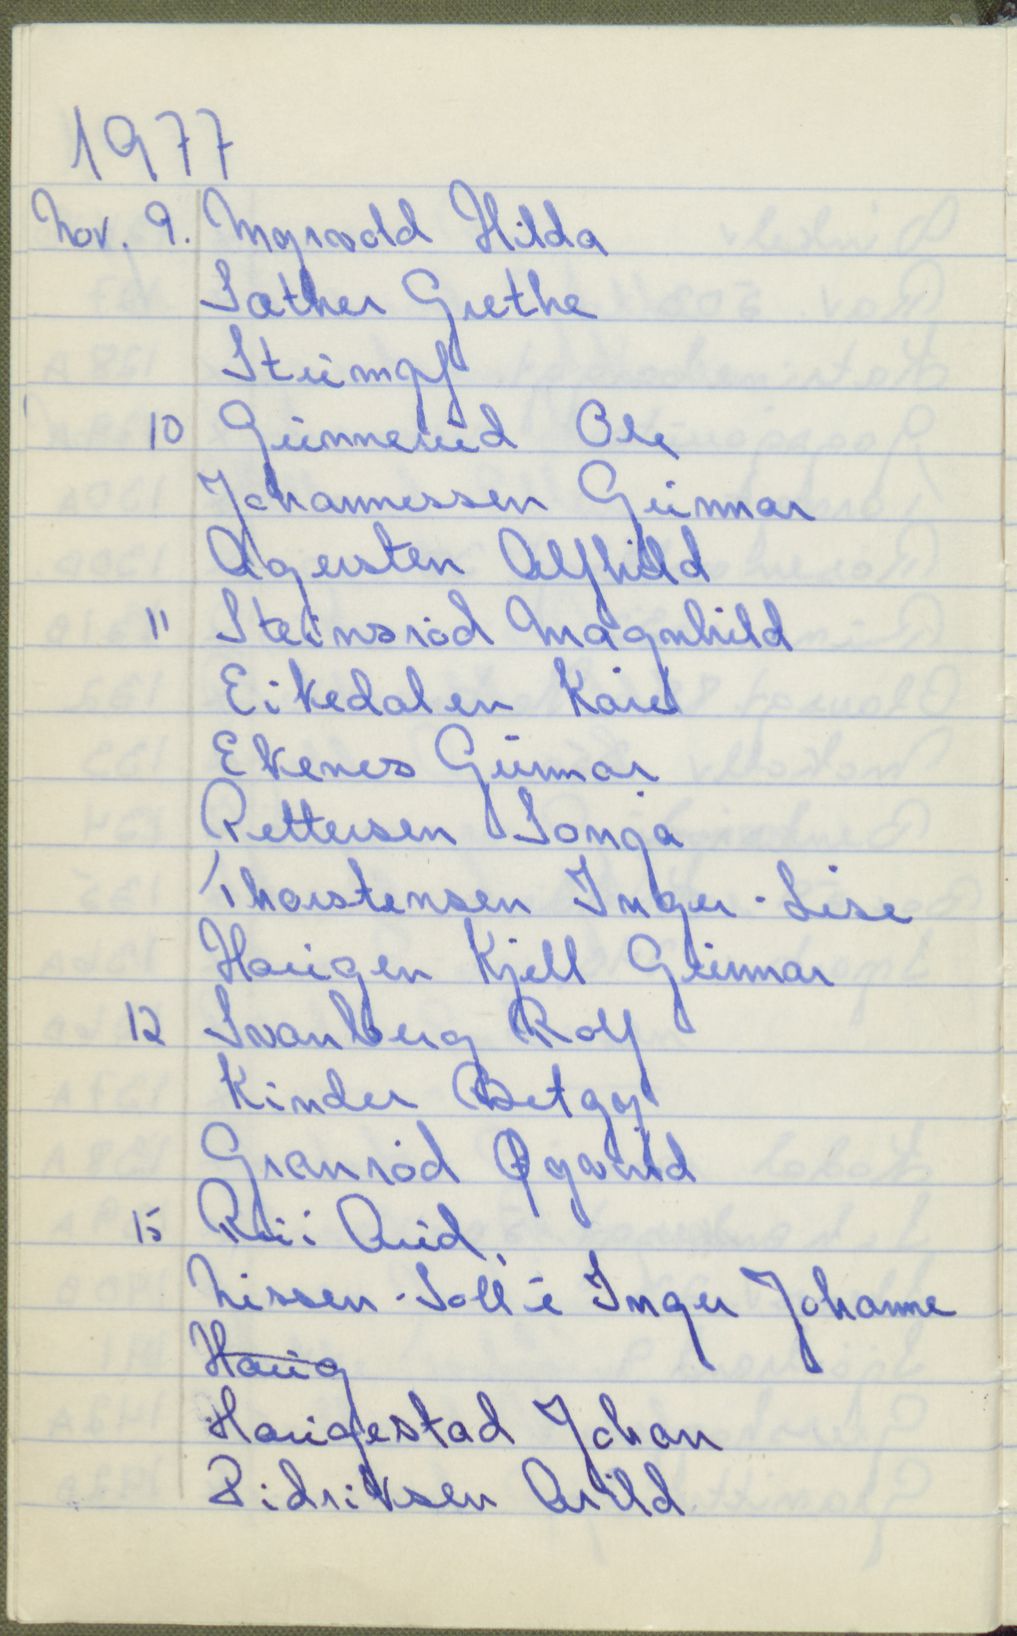 1977
Nov. 9. Myrvold Hilda
Sæther Grethe
Stumpf
10 Gunnerud Ole
Johannessen Gunnar
Agersten Alfhild
11 Steinsrød Magnhild
Eikedalen Kåre
Ekenes Gunnar
Pettersen Sonja
Thorstensen Inger-Lise
Haugen Kjell Gunnar
12 Svanberg Rolf
Kinder Betzy
Granrød Øyvind
15 Arid
Nissen-Sollie Inger Johanne
Haug
Haugestad Johan
Didriksen Arild